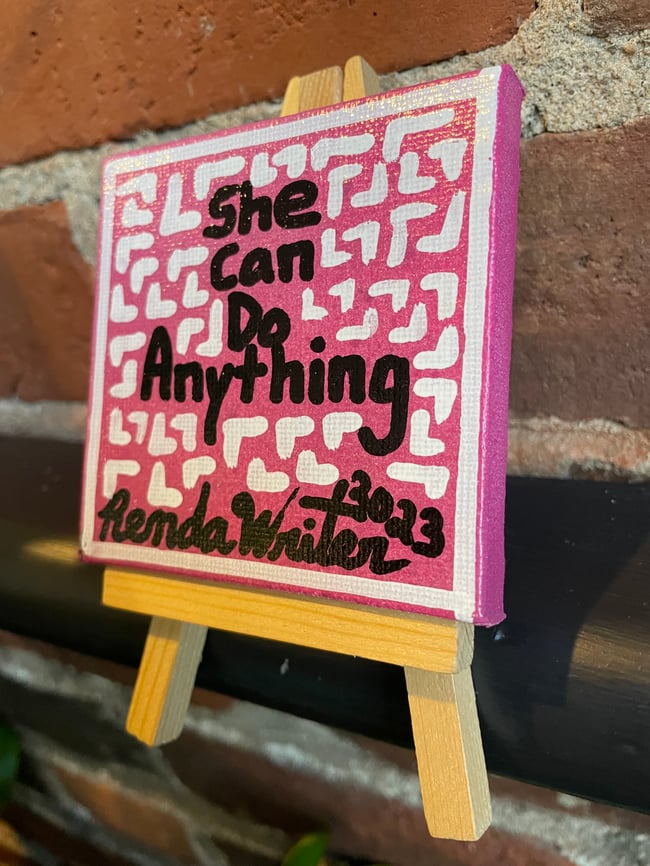 She
can
Do
Anything
Renda Writer 3023